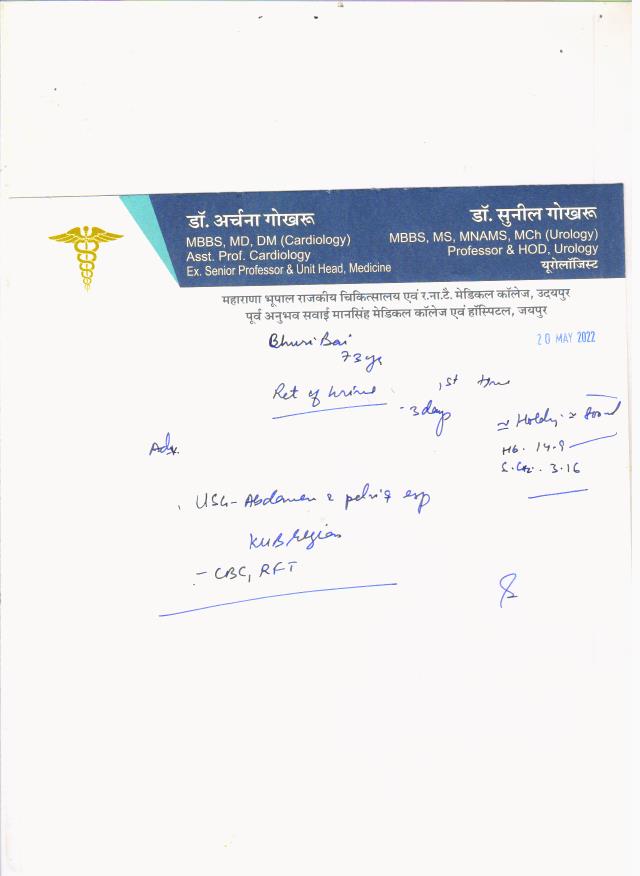 डॉ. अर्चना गोखरू
MBBS, MD, DM (Cardiology)
Asst. Prof. Cardiology
Ex. Senior Professor & Unit Head, Medicine
डॉ. सुनील गोखरू
MBBS, MS, MNAMS, MCh (Urology)
Professor & HOD, Urology
यूरोलॉजिस्ट
महाराणा भूपाल राजकीय चिकित्सालय एवं र.ना.टै. मेडिकल कॉलेज, उदयपुर
पूर्व अनुभव सवाई मानसिंह मेडिकल कॉलेज एवं हॉस्पिटल, जयपुर
20 MAY 2022
Bhuri Bai
73 yr
Ret of urine 1st time
- 3 days
Hb. 14.9
3.16
Adv.
USG - Abdomen & pelvis esp
KUB region
- CBC, RFT